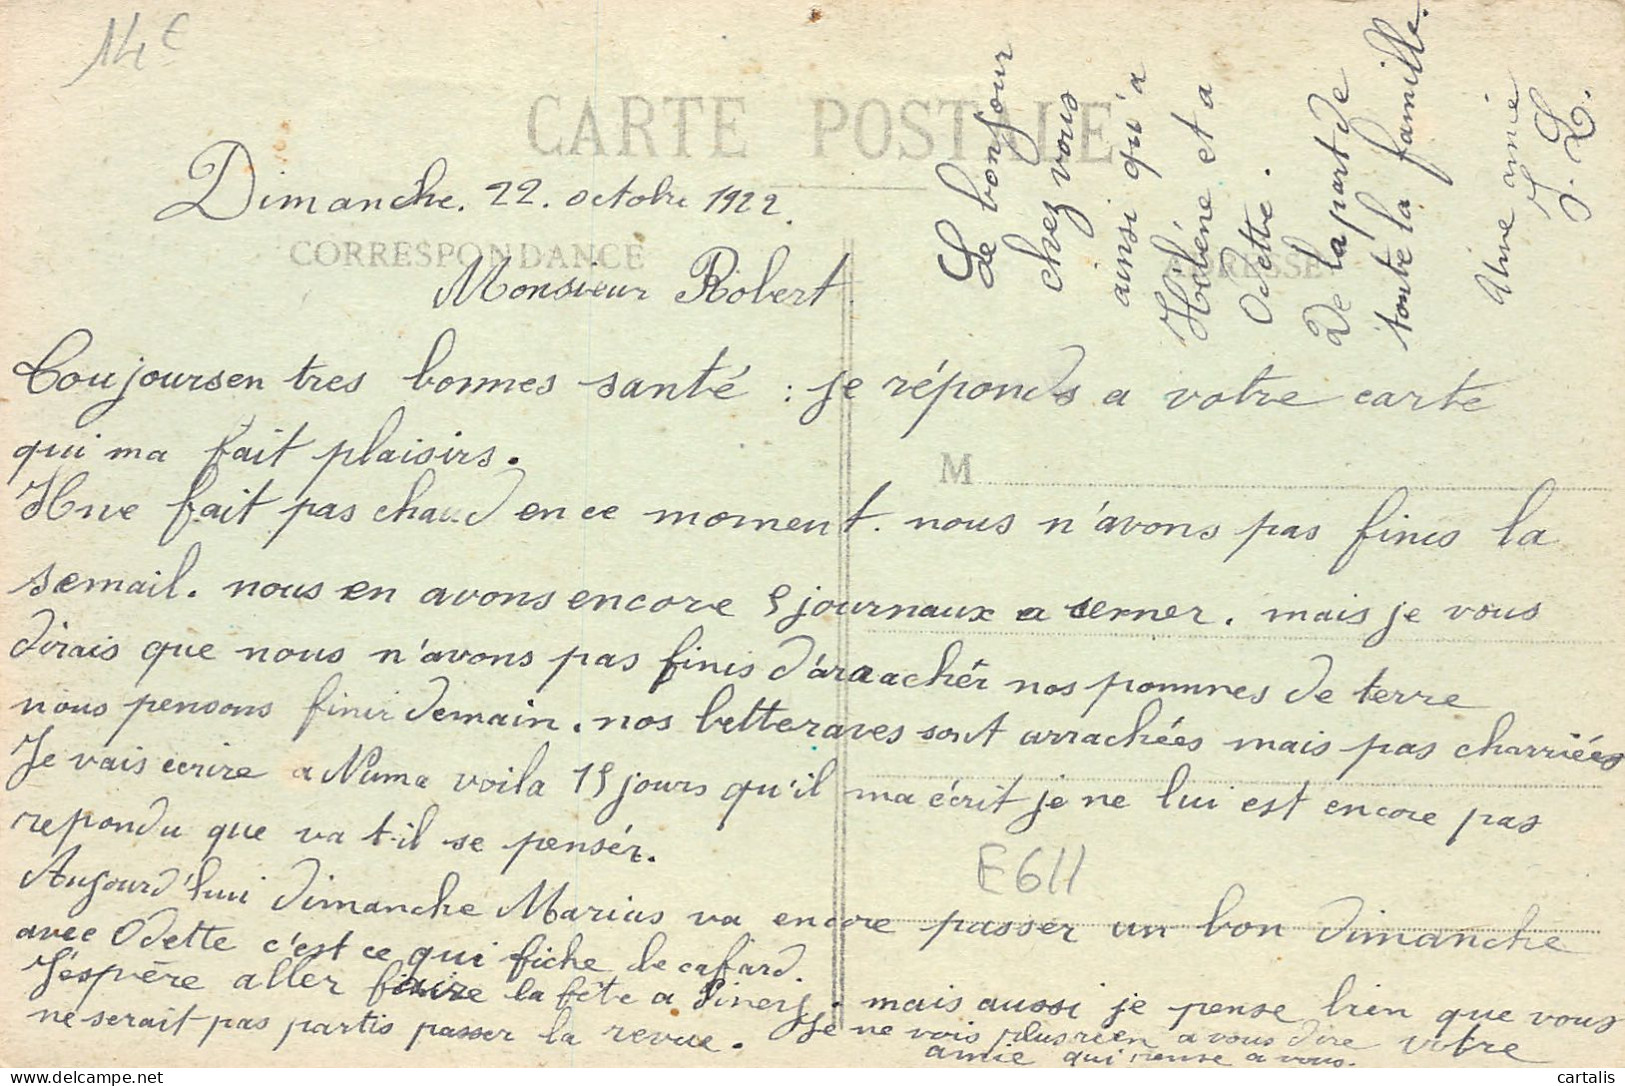 14€
CARTE POSTALE
Dimanche. 22. octobre 1922.
CORRESPONDANCE
ADRESSE
Monsieur Robert.
Toujours en tres bonnes santé : je réponds a votre carte
qui ma fait plaisirs.
M
Il ne fait pas chaud en ce moment. nous n'avons pas finis la
semail. nous en avons encore 5 journaux a semer. mais je vous
dirais que nous n'avons pas finis d'arrachér nos pommes de terre
nous pensons finir demain. nos betteraves sont arrachées mais pas charriées
Je vais ecrire a Numa voila 15 jours qu'il ma écrit je ne lui est encore pas
repondu que va t-il se pensér.
Aujourd'hui dimanche Marius va encore passer un bon dimanche
avec Odette c'est ce qui fiche le cafard.
J'éspère aller faire la fête a . mais aussi je pense bien que vous
ne serait pas partis passer la revue. Je ne vois plus rien a vous dire votre
amie qui pense a vous.
Le bonjour
chez vous
ainsi qu'a
Hélène et a
Odette.
De la part de
toute la famille.
Une amie
J. L.
E611
cartalis
delcampe.net